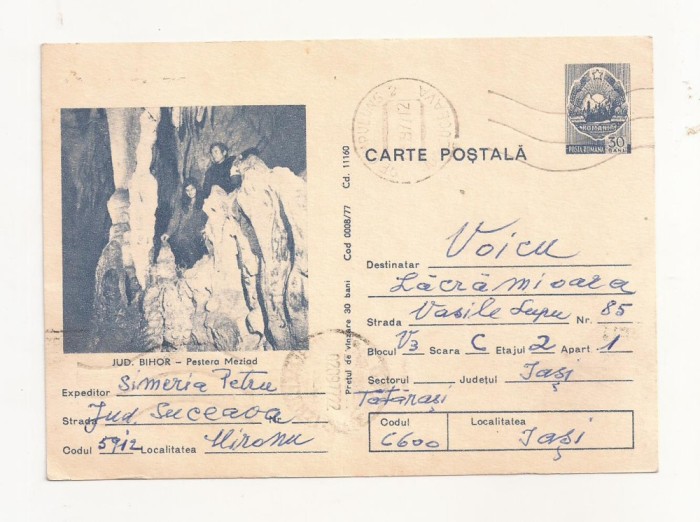 CARTE POȘTALĂ
ROMANIA
POSTA ROMANA
50 BANI
Destinatar Voicu
Lăcrămioara
Strada Vasile Lupu Nr. 85
Blocul V3 Scara C Etajul 2 Apart 1
Sectorul Județul Iași
Tătărași
Codul 6600 Localitatea Iași
Prețul de vînzare 30 bani Cod 0008/77 Cd. 11160
JUD. BIHOR – Peștera Meziad
Expeditor Simeria Petru
Strada Jud. Suceava Nr.
Codul 5912 Localitatea Mironu
SUCEAVA